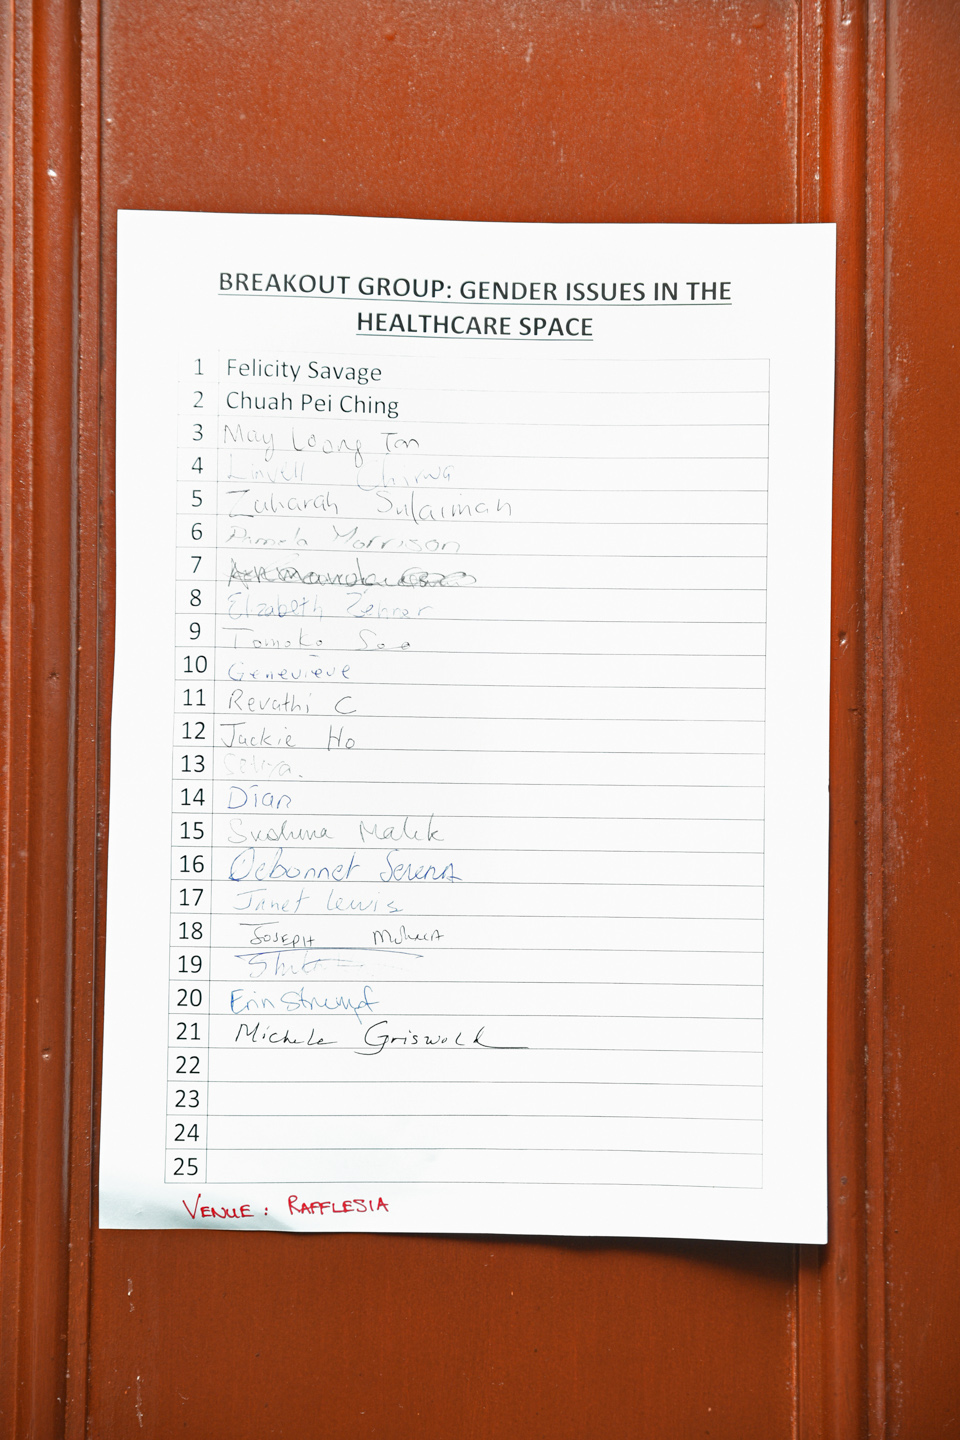 BREAKOUT GROUP: GENDER ISSUES IN THE
HEALTHCARE SPACE
1 Felicity Savage
2 Chuah Pei Ching
3 May Loong Tan
4 Linvell Chirwa
5 Zaharah Sulaiman
6 Pamela Morrison
7
8 Elizabeth Zehner
9 Tomoko Seo
10 Genevieve
11 Revathi C
12 Jackie Ho
13 Setya.
14 Dian
15 Sushma Malik
16 Debonnet Serena
17 Janet Lewis
18 JOSEPH
19
20 Erin Strumpf
21 Michele Griswold
22
23
24
25
VENUE : RAFFLESIA